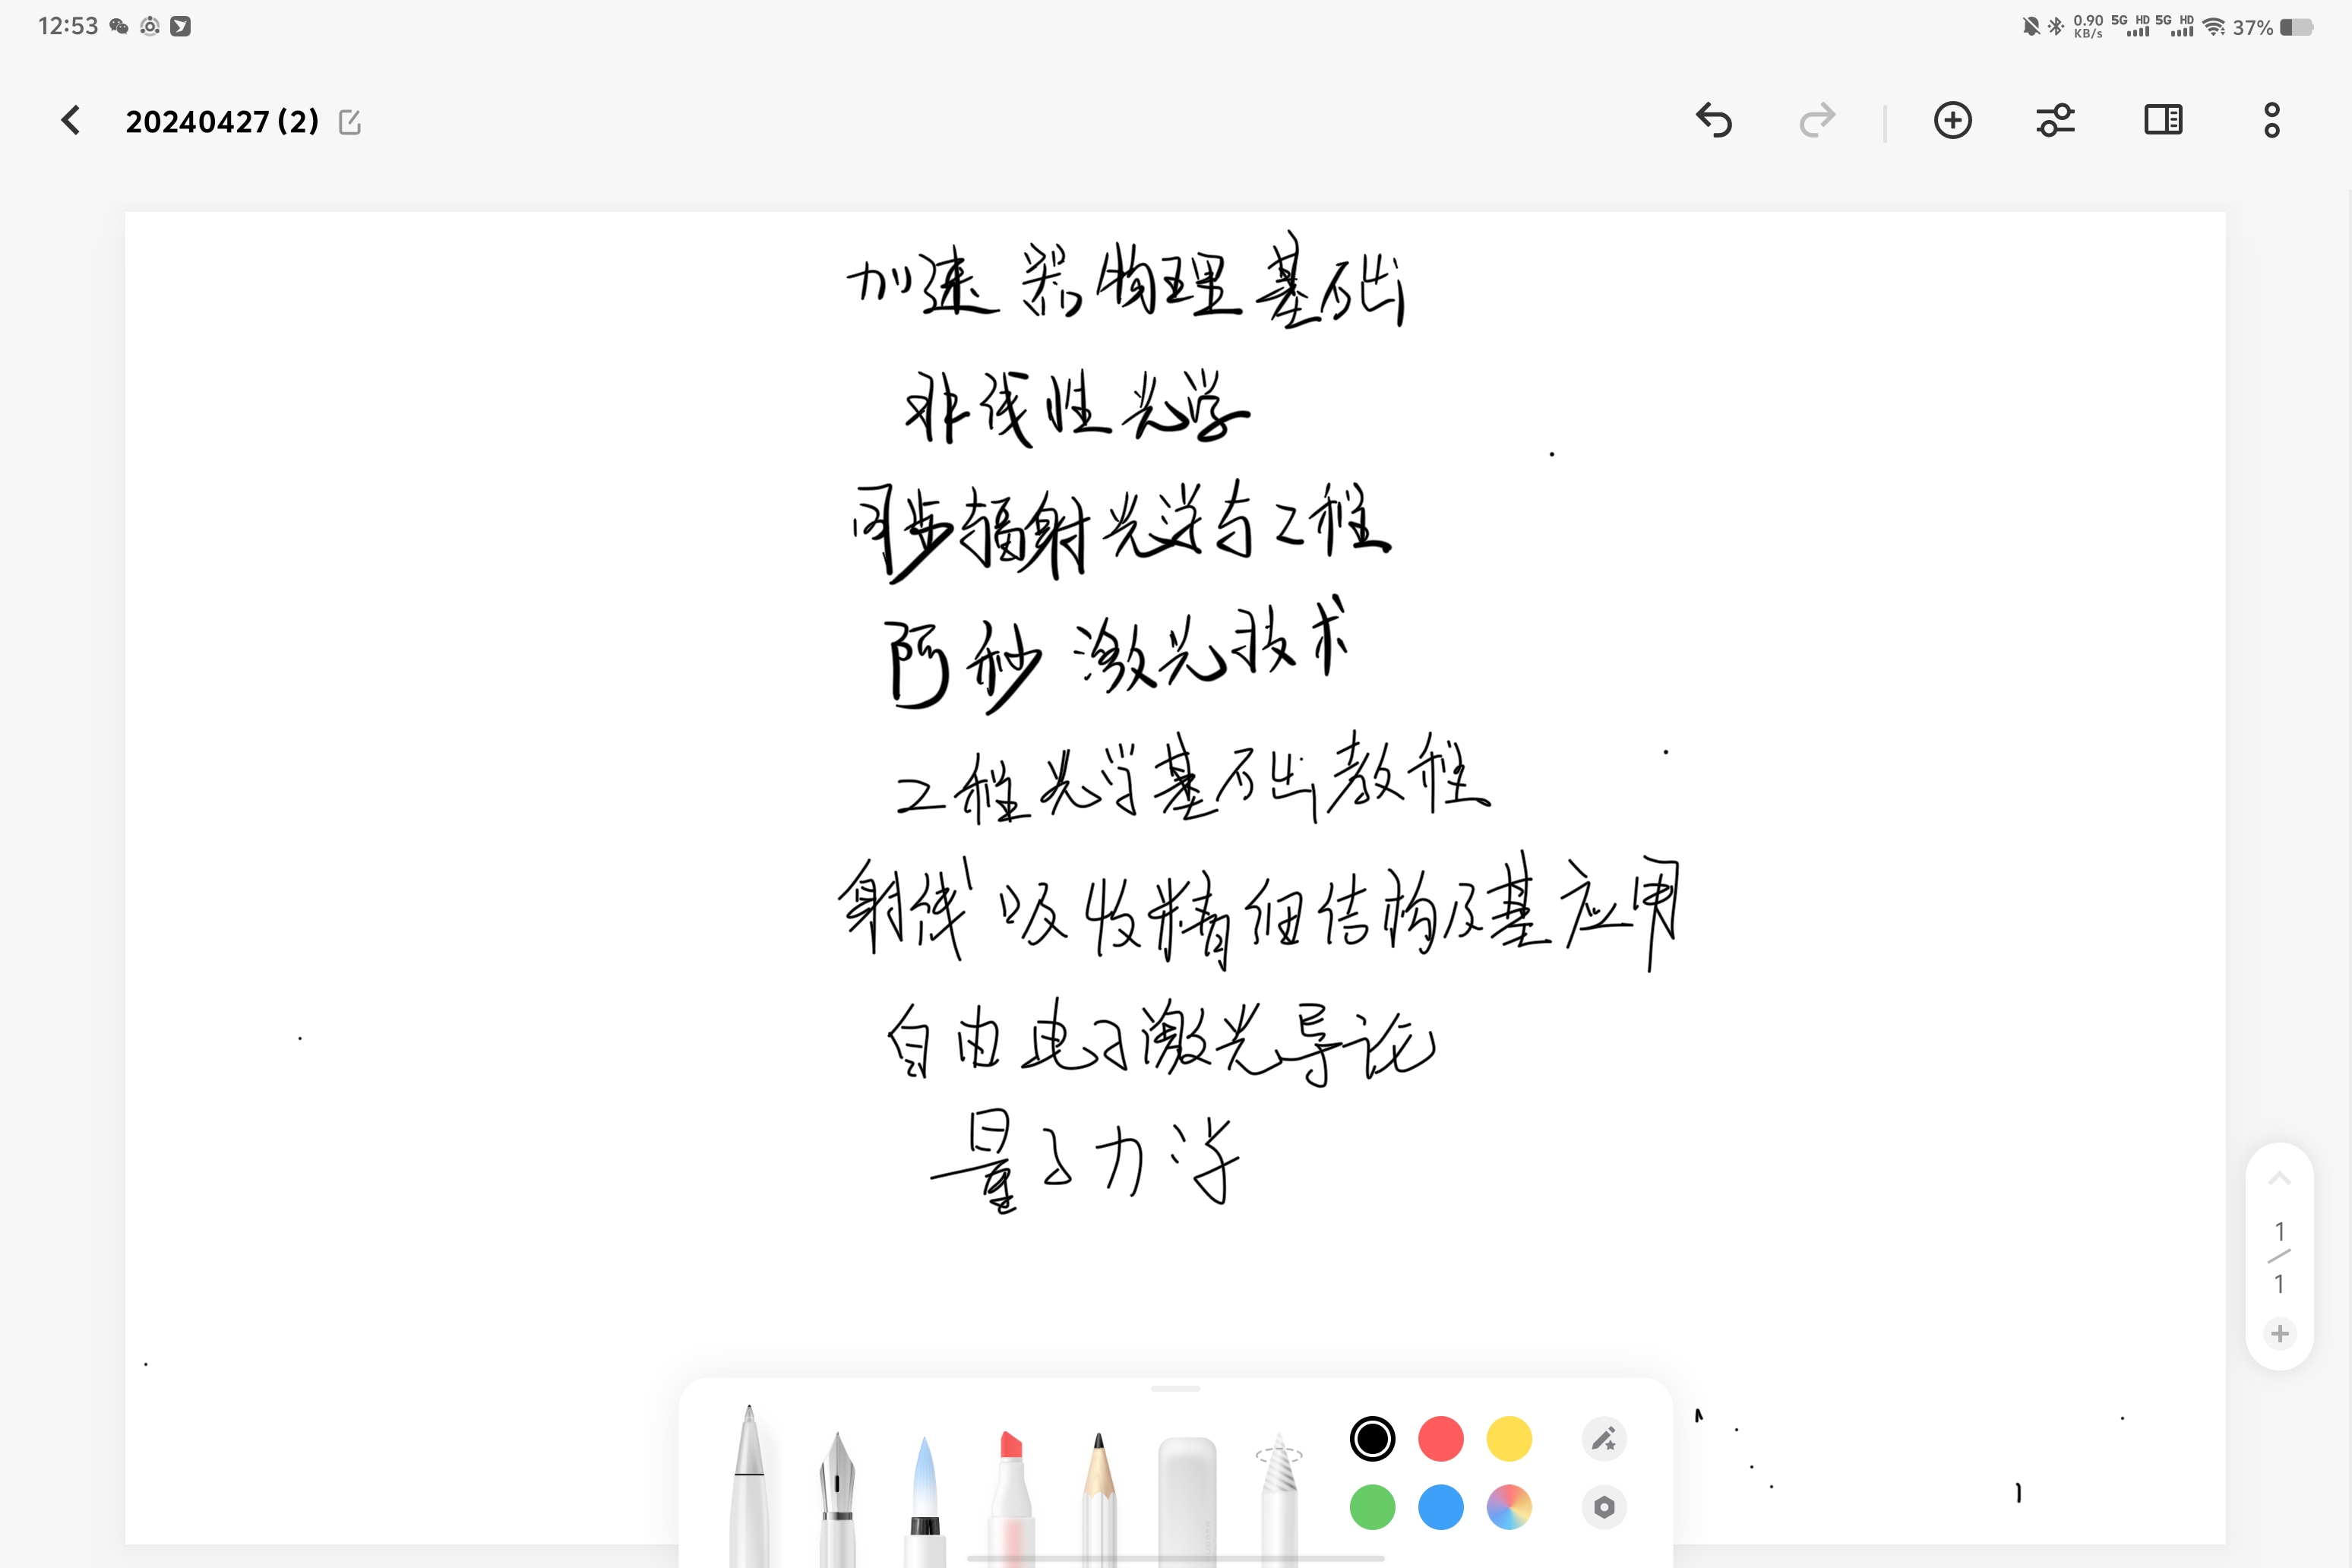 12:53 0.90 KB/s 5G HD 5G HD 37%
20240427 (2)
加速器物理基础
非线性光学
同步辐射光学与工程
阿秒激光技术
工程光学基础教程
射线吸收精细结构及基应用
自由电子激光导论
量子力学
1
1